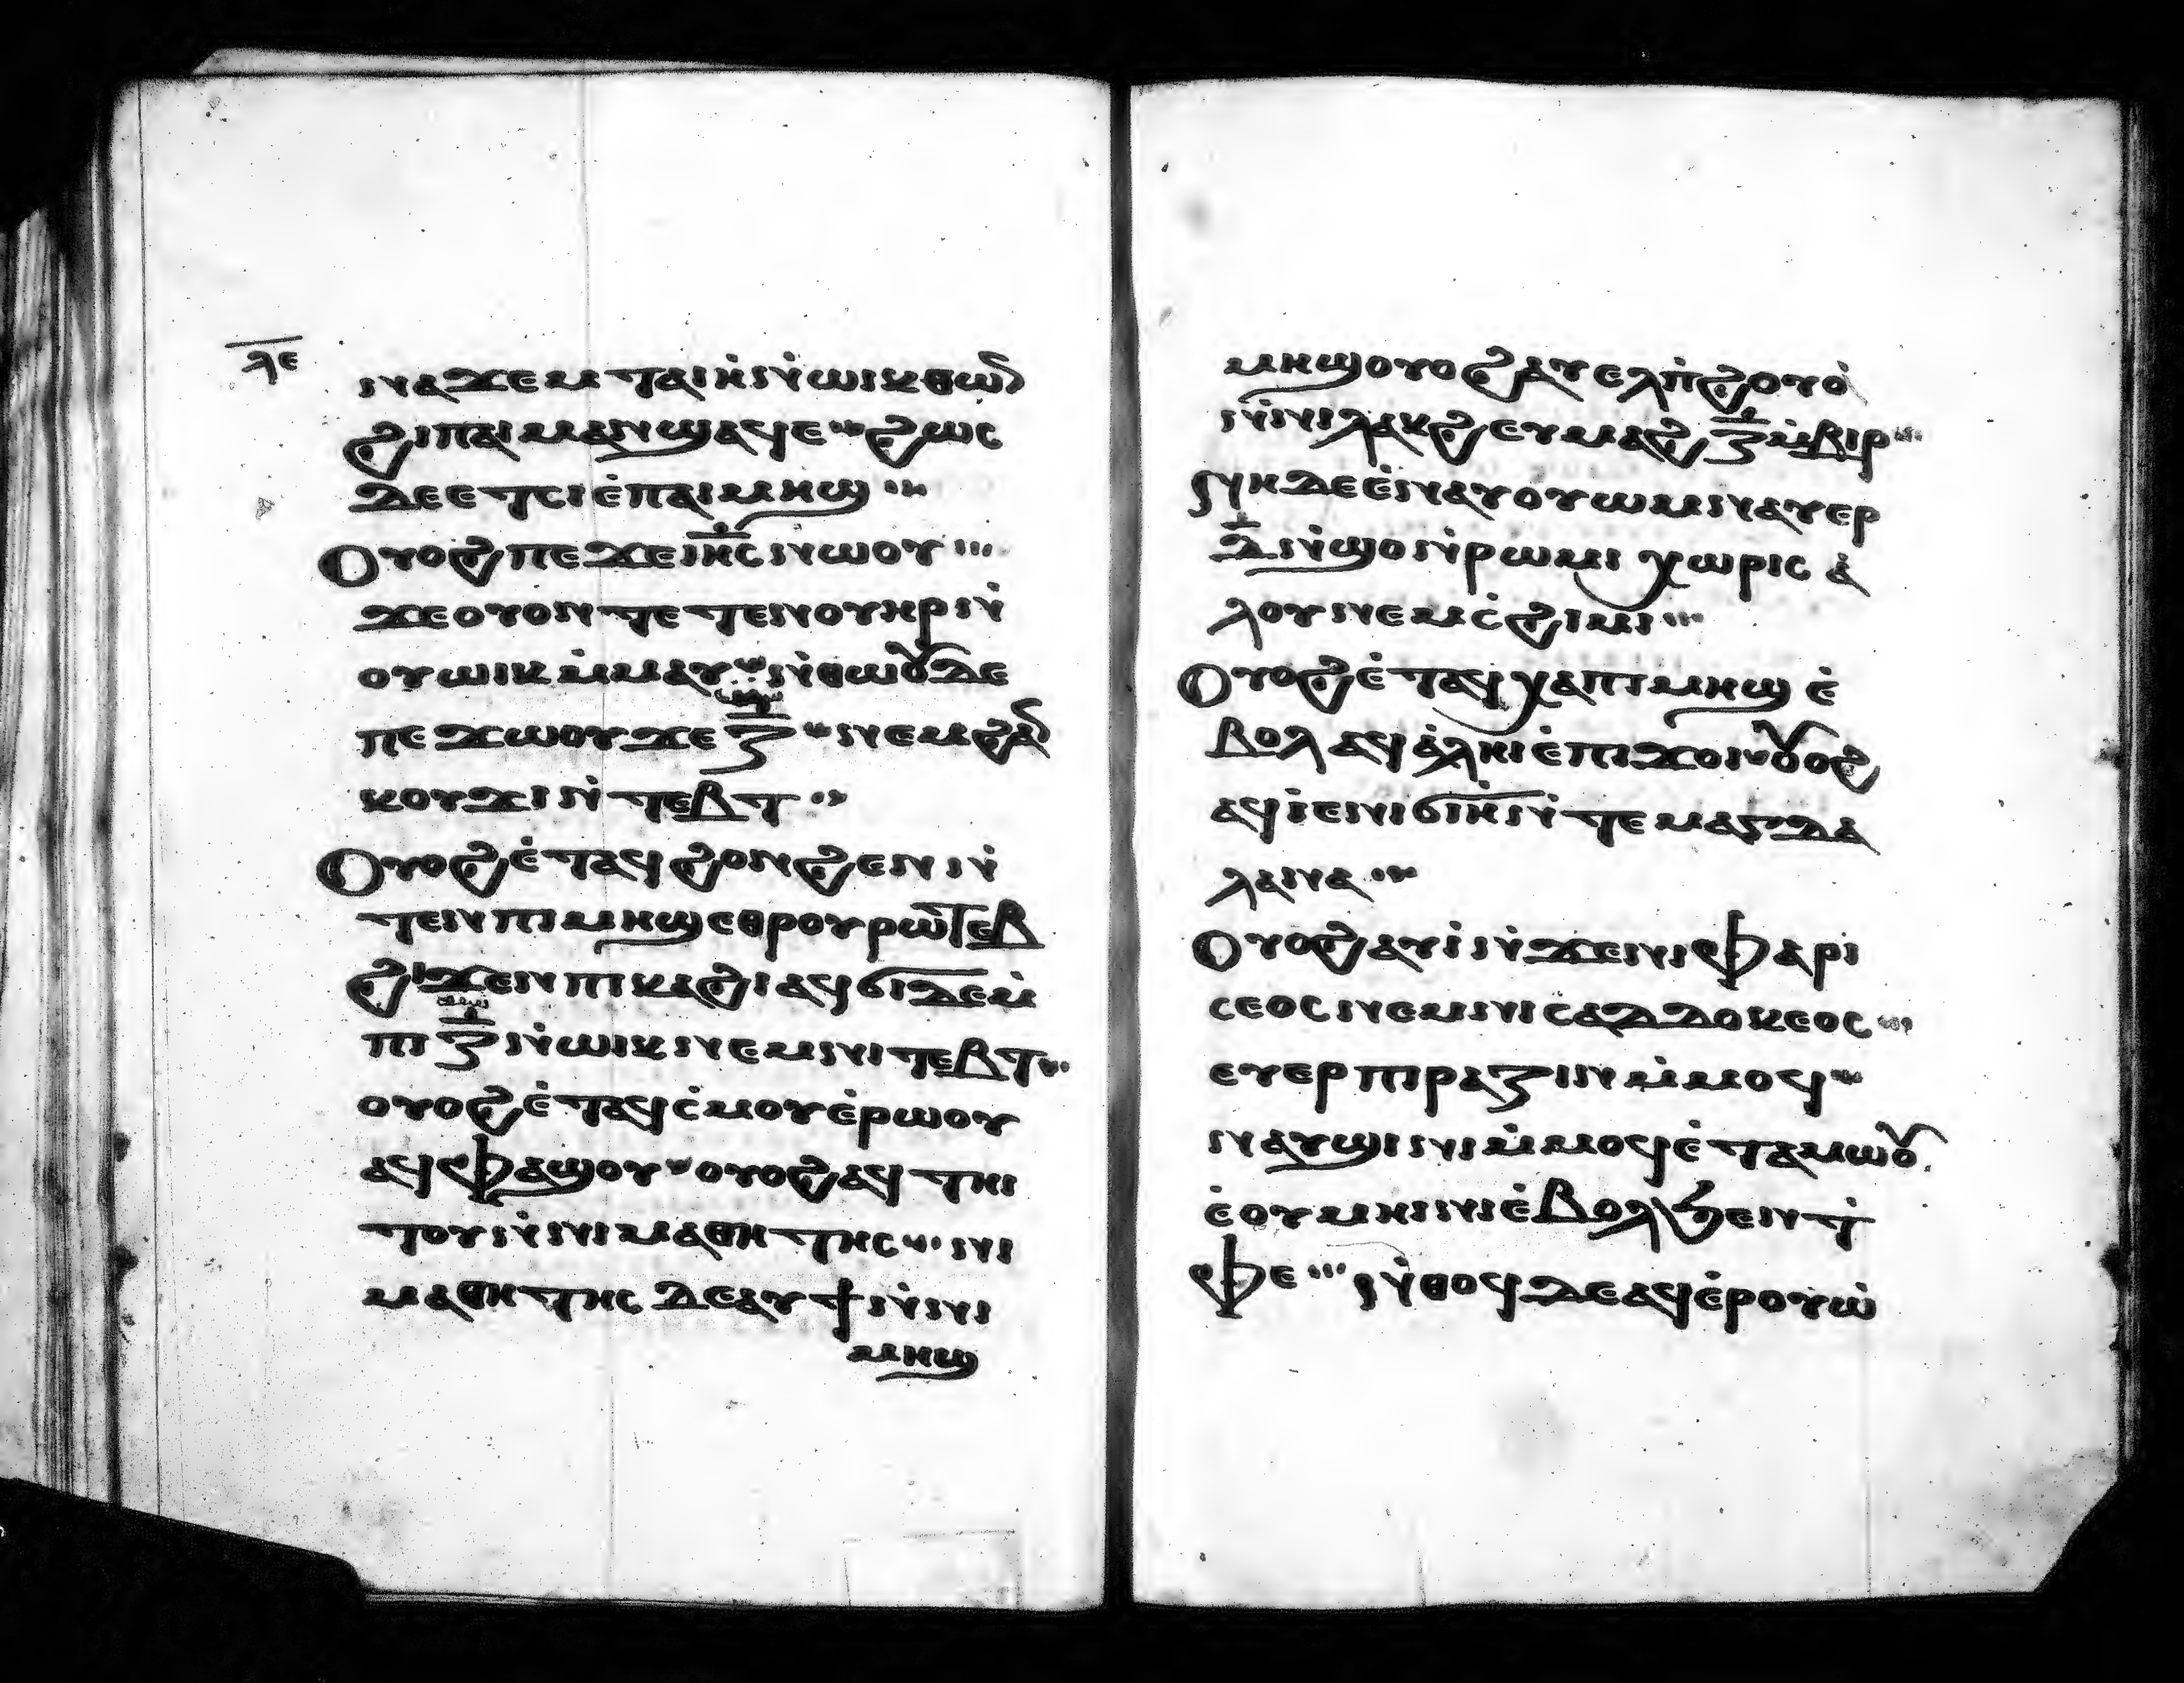 ⲗⲉ
ⲛⲁϫⲉⲙ ⲧⲁⲓⲏⲛ̇ⲱⲓⲕ ⲑⲱ
ϩⲓ ⲡⲁⲓⲙⲁⲛϣⲁϥⲉ ϩⲱⲥ
ⲇⲉ ⲉⲧⲥⲓ ⲉ̇ⲡⲁⲓⲙⲏϣ
Ⲟⲩⲟϩ ⲡⲉϫⲉ ⲓⲏ̅ⲥ̅ ⲛⲱⲟⲩ
ϫⲉ ⲟⲩⲟⲛⲧⲉⲧⲉⲛ ⲟⲩⲏⲣ ⲛ̇
ⲟⲩⲱⲓⲕ ⲙ̇ⲙⲁⲩ ⲛ̇ⲑⲱⲟⲩ ⲇⲉ
ⲡⲉϫⲱⲟⲩ ϫⲉ ⲍ̅ ⲛⲉⲙ ϩⲁⲛ
ⲕⲟⲩϫⲓ ⲛ̇ⲧⲉⲃⲧ
Ⲟⲩⲟϩ ⲉ̇ⲧⲁϥϩⲟⲛϩⲉⲛ ⲛ̇
ⲧⲉⲛ ⲡⲓⲙⲏϣ ⲉⲑⲣⲟⲩⲣⲱⲧⲉⲃ
ϩⲓϫⲉⲛ ⲡⲓⲕⲁϩⲓ ⲁϥϭⲓ ⲇⲉ ⲙ̇
ⲡⲓ ⲍ̅ ⲛ̇ⲱⲓⲕ ⲛⲉⲙ ⲛⲓⲧⲉⲃⲧ
ⲟⲩⲟϩ ⲉ̇ⲧⲁϥⲥ̇ⲙⲟⲩ ⲉ̇ⲣⲱⲟⲩ
ⲁϥⲫⲁϣⲟⲩ ⲟⲩⲟϩ ⲁϥⲧⲏⲓ
ⲧⲟⲩ ⲛ̇ⲛⲓⲙⲁⲑⲏⲧⲏⲥ ⲛⲓ
ⲙⲁⲑⲏⲧⲏⲥ ⲇⲉ ⲁⲩϯ ⲛ̇ⲛⲓ
ⲙⲏϣ
ⲙⲏϣ ⲟⲩⲟϩ ⲁⲩⲉⲗⲡ̇ϩⲟⲩⲟ̇
ⲛ̇ⲛⲓⲗⲁⲕϩ ⲉⲩⲙⲁϩ ⲍ̅ ⲙ̇ⲃⲓⲣ
ⲛⲏ ⲇⲉ ⲉ̇ⲛⲁⲩⲟⲩⲱⲙ ⲛⲁⲩⲉⲣ
ⲇ̅ ⲛ̇ϣⲟ ⲛ̇ⲣⲱⲙⲓ ⲭⲱⲣⲓⲥ ⲁ̇
ⲗⲟⲩ ⲛⲉⲙ ⲥ̇ϩⲓⲙⲓ
Ⲟⲩⲟϩ ⲉ̇ⲧⲁϥⲭⲁ ⲡⲓⲙⲏϣ ⲉ̇
ⲃⲟⲗ ⲁϥⲁ̇ⲗⲏⲓ ⲉ̇ⲡⲓϫⲟⲓ ⲟⲩⲟϩ
ⲁϥⲓ̇ ⲉⲛⲓϭⲓⲏ̇ ⲛ̇ⲧⲉ ⲙⲁⲅⲇⲁ
ⲗⲁⲛⲁ
Ⲟⲩⲟϩ ⲁⲩⲓ̇ ⲛ̇ϫⲉ ⲛⲓⲫⲁⲣⲓ
ⲥⲉⲟⲥ ⲛⲉⲙ ⲛⲓⲥⲁⲇⲇⲟⲕⲉⲟⲥ
ⲉⲩⲉⲣⲡⲓⲣⲁⲍⲓⲛ ⲙ̇ⲙⲟϥ
ⲛⲁⲩϣⲓⲛⲓ ⲙ̇ⲙⲟϥ ⲉ̇ⲧⲁⲙⲱⲟⲩ
ⲉ̇ⲟⲩⲙⲏⲓⲛⲓ ⲉ̇ⲃⲟⲗ ϧⲉⲛ ⲧ̇
ⲫⲉ ⲛ̇ⲑⲟϥ ⲇⲉ ⲁϥⲉ̇ⲣⲟⲩⲱ̇